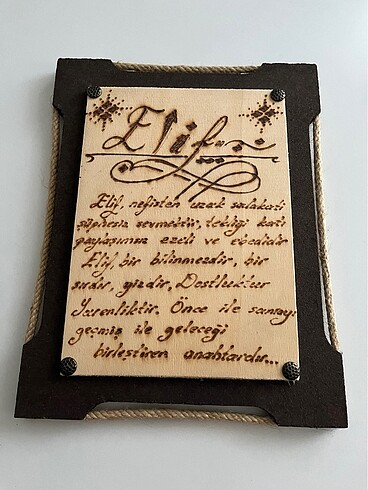 Elif
Elif, nefisten uzak sadakati
şüphesiz sevmektir, tekliği kati
paylaşımsız ezeli ve ebedidir
Elif, bir bilinmezdir, bir
sırdır, gizdir. Dostluktur
Yarenliktir. Önce ile sonrayı
geçmiş ile geleceği
birleştiren anahtardır...